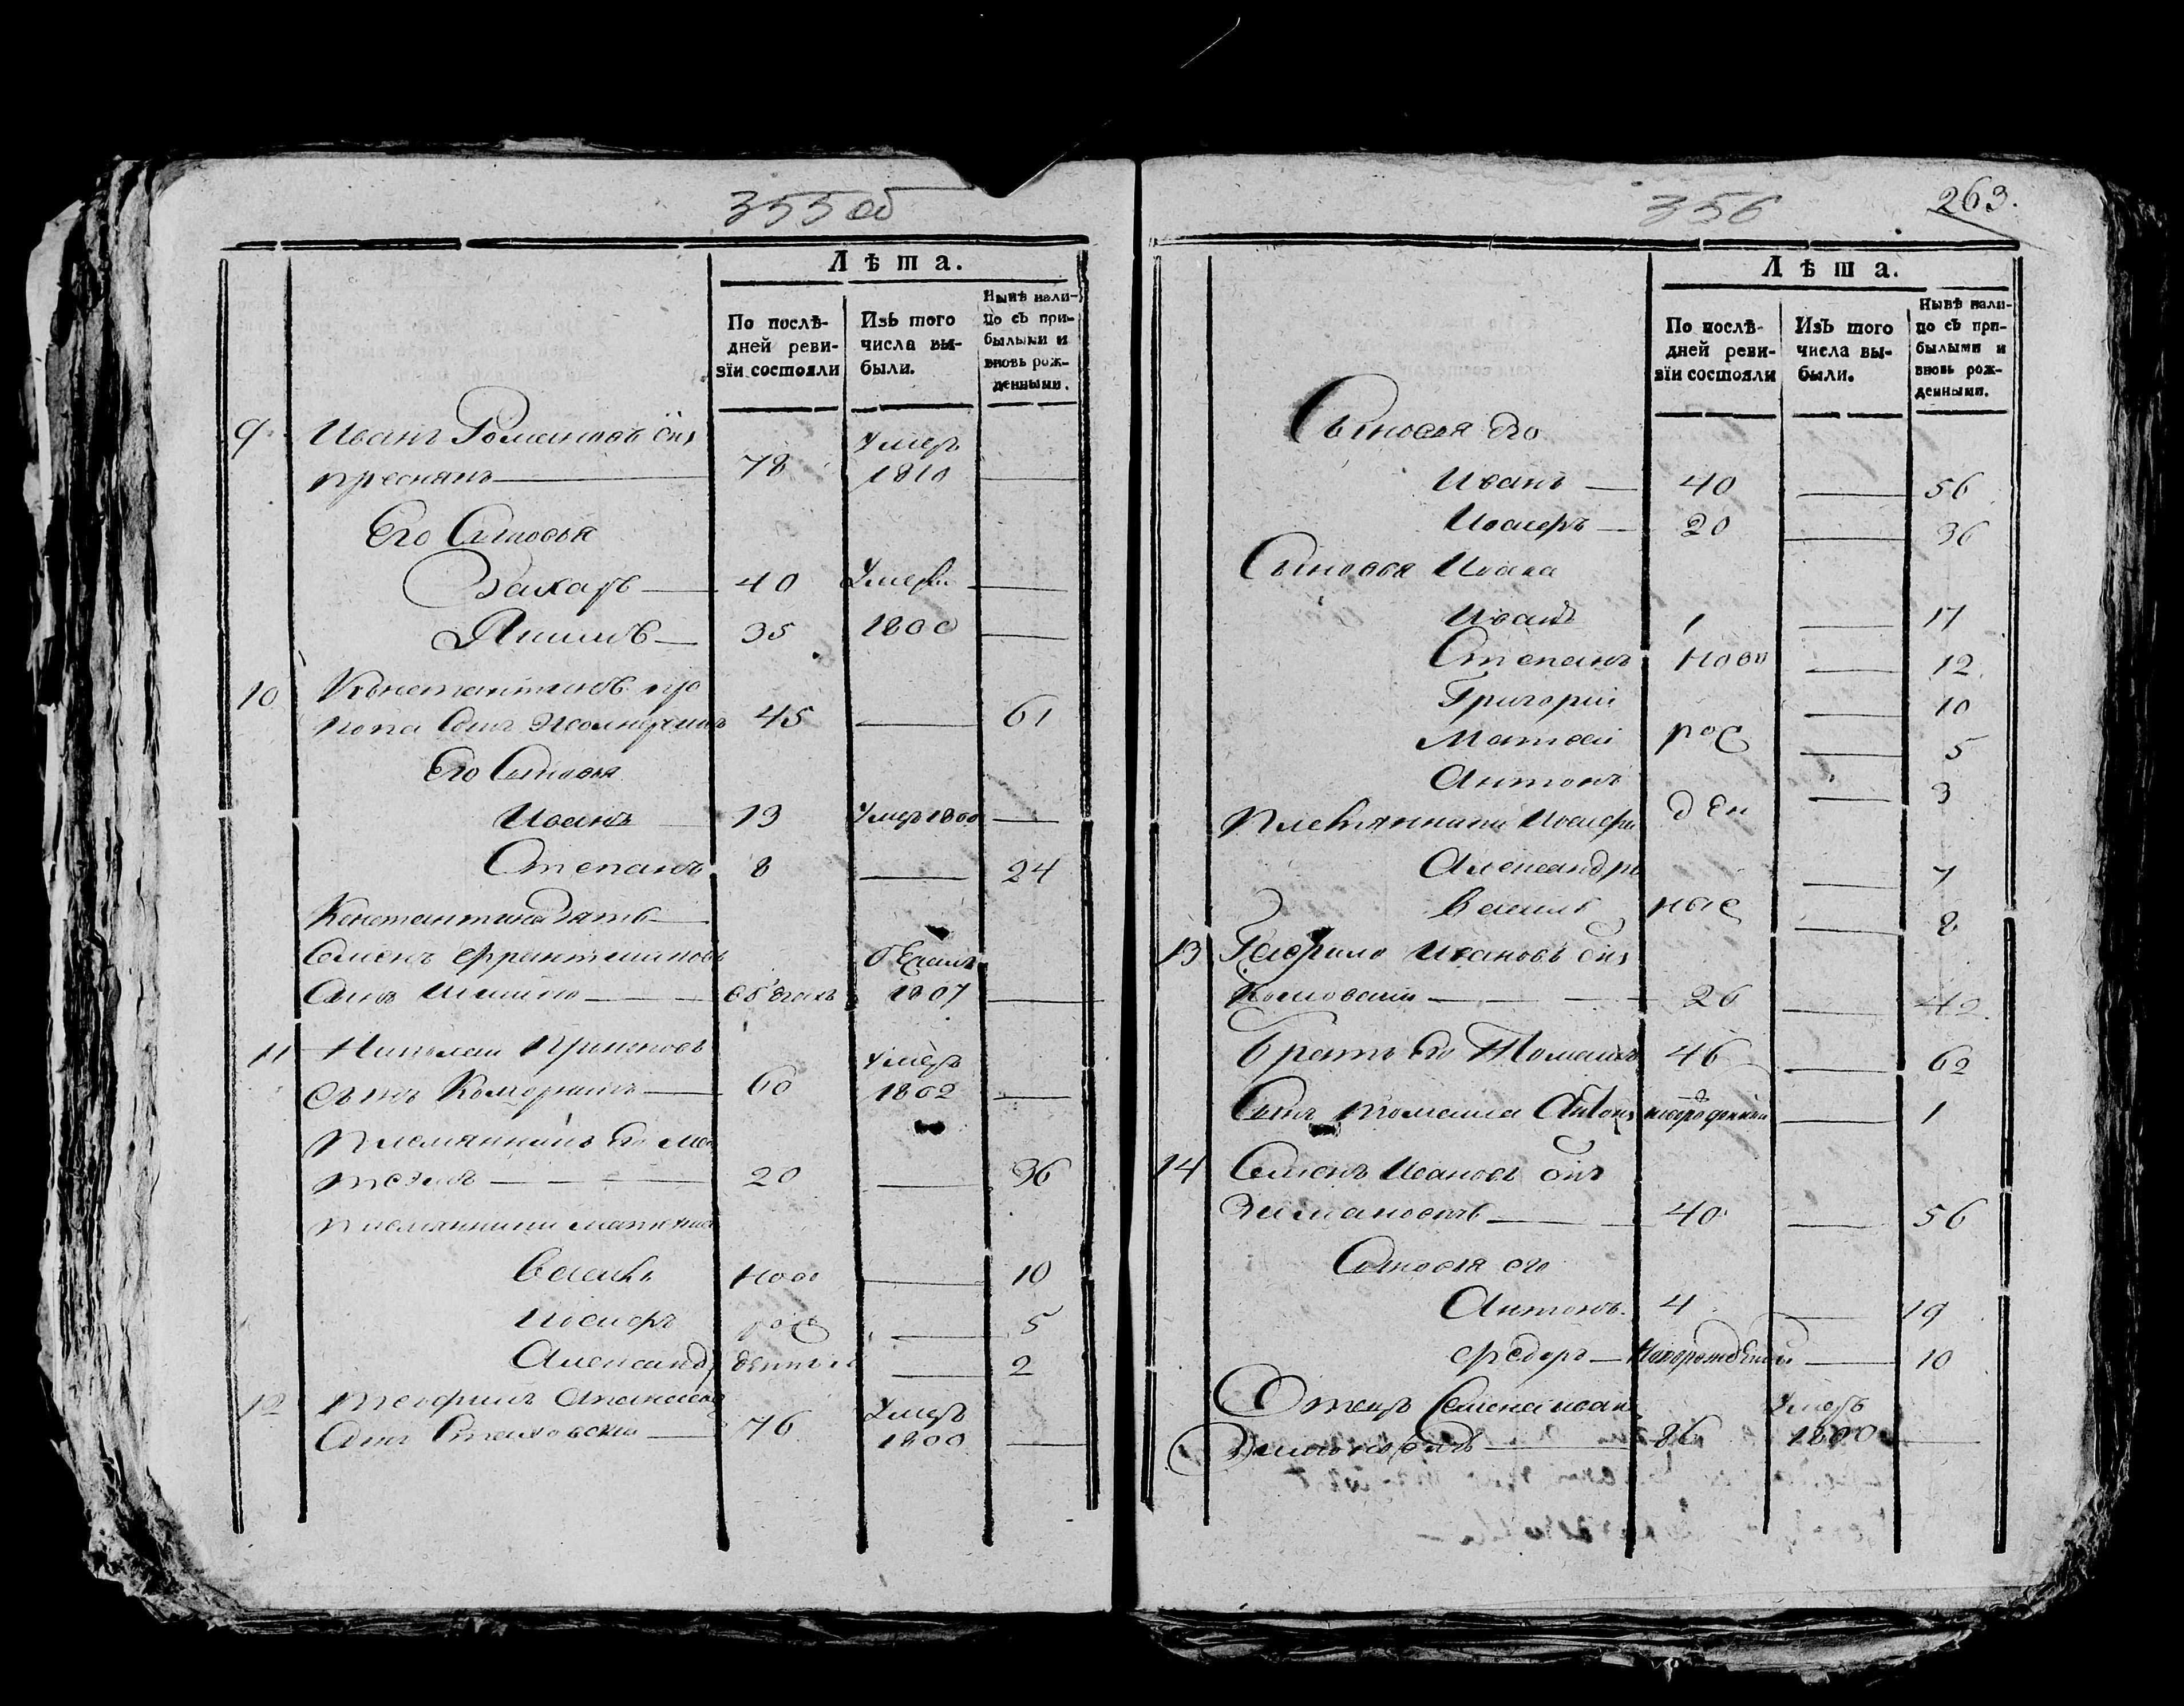 355 об
Лѣта.
По послѣ-
дней реви-
зїи состояли
Изъ того
числа вы-
были.
Нынѣ нали-
цо съ при-
былыми и
вновь рож-
денными.
9 Иванъ Романовъ сынъ Умеръ
78 1810
Его Сыновья
Захаръ 40 Умерли
Якимъ 35 1800
10 Константинъ про
копа Сынъ 45 61
Его Сыновья
Иванъ 13 Умеръ 1800
Степанъ 8 24
Константина зять
Семенъ
Сынъ въ бегахъ 1807
11 Николай Умеръ
Сынъ 60 1802
Племянникъ его Ма
твей 20 36
Племянники
Василь Ново 10
Иосифъ рож 5
Александръ денные 2
12 Умеръ
Сынъ 76 1800
356 263.
Лѣта.
По послѣ-
дней реви-
зїи состояли
Изъ того
числа вы-
были.
Нынѣ нали-
цо съ при-
былыми и
вновь рож-
денными.
Сыновья его
Иванъ 40 56
Иосифъ 20 36
Сыновья Ивана
Иванъ 1 17
Степанъ Ново 12
Григорий 10
Матвей рож 5
Антонъ 3
Племянники Иосифа ден
Александръ 7
Василь ные 8
13 Гаврило Ивановъ сынъ
26 42
Братъ его Томашъ 46 62
Сынъ Томаша Антонъ новорожденный 1
14 Семенъ Ивановъ сынъ
40 56
Сыновья его
Антонъ 4 19
Федоръ Новорожденный 10
Отецъ Семена Иванъ Умеръ
86 1800